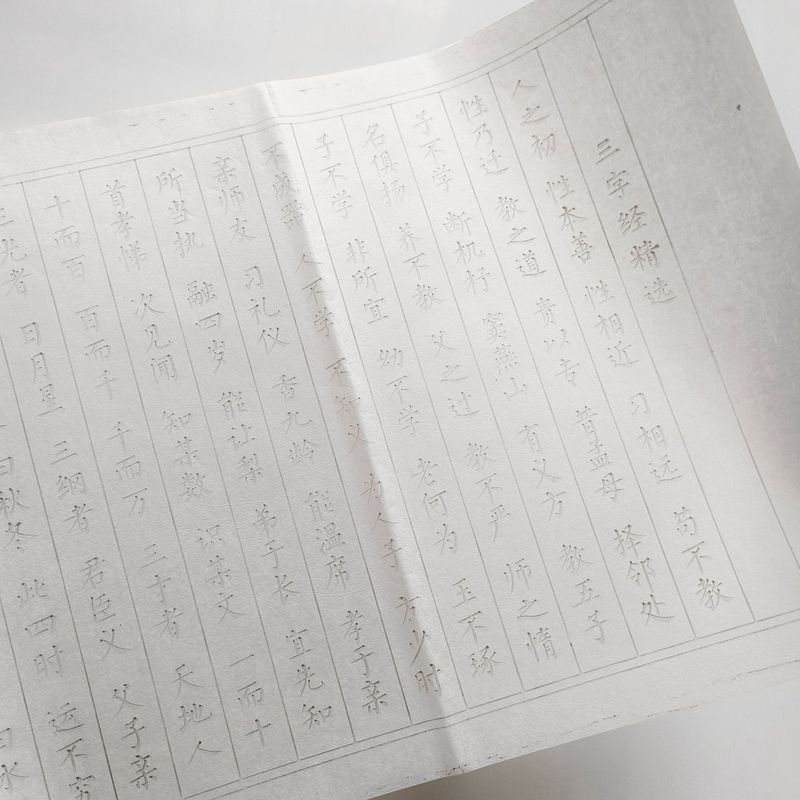 三字经精选
人之初 性本善 性相近 习相远 苟不教
性乃迁 教之道 贵以专 昔孟母 择邻处
子不学 断机杼 窦燕山 有义方 教五子
名俱扬 养不教 父之过 教不严 师之惰
子不学 非所宜 幼不学 老何为 玉不琢
不成器 人不学 不知义 为人子 方少时
亲师友 习礼仪 香九龄 能温席 孝于亲
所当执 融四岁 能让梨 弟于长 宜先知
首孝悌 次见闻 知某数 识某文 一而十
十而百 百而千 千而万 三才者 天地人
三光者 日月星 三纲者 君臣义 父子亲
曰秋冬 此四时 运不穷
曰水